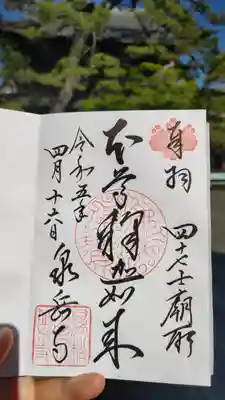 奉拝
四十七士廟所
本尊釋迦如来
令和五年
四月十六日
泉岳寺